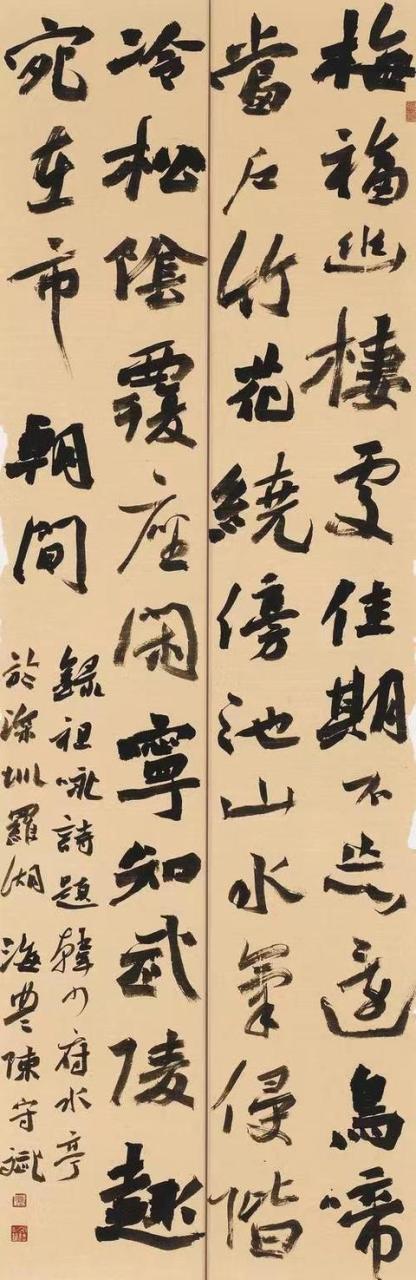 梅福幽棲處佳期不忘還鳥啼
當戶竹花繞傍池山水氣侵階
冷松陰覆座閑寧知武陵趣
宛在市朝間
錄祖詠詩題韓少府水亭
於深圳羅湖海豐陳守斌